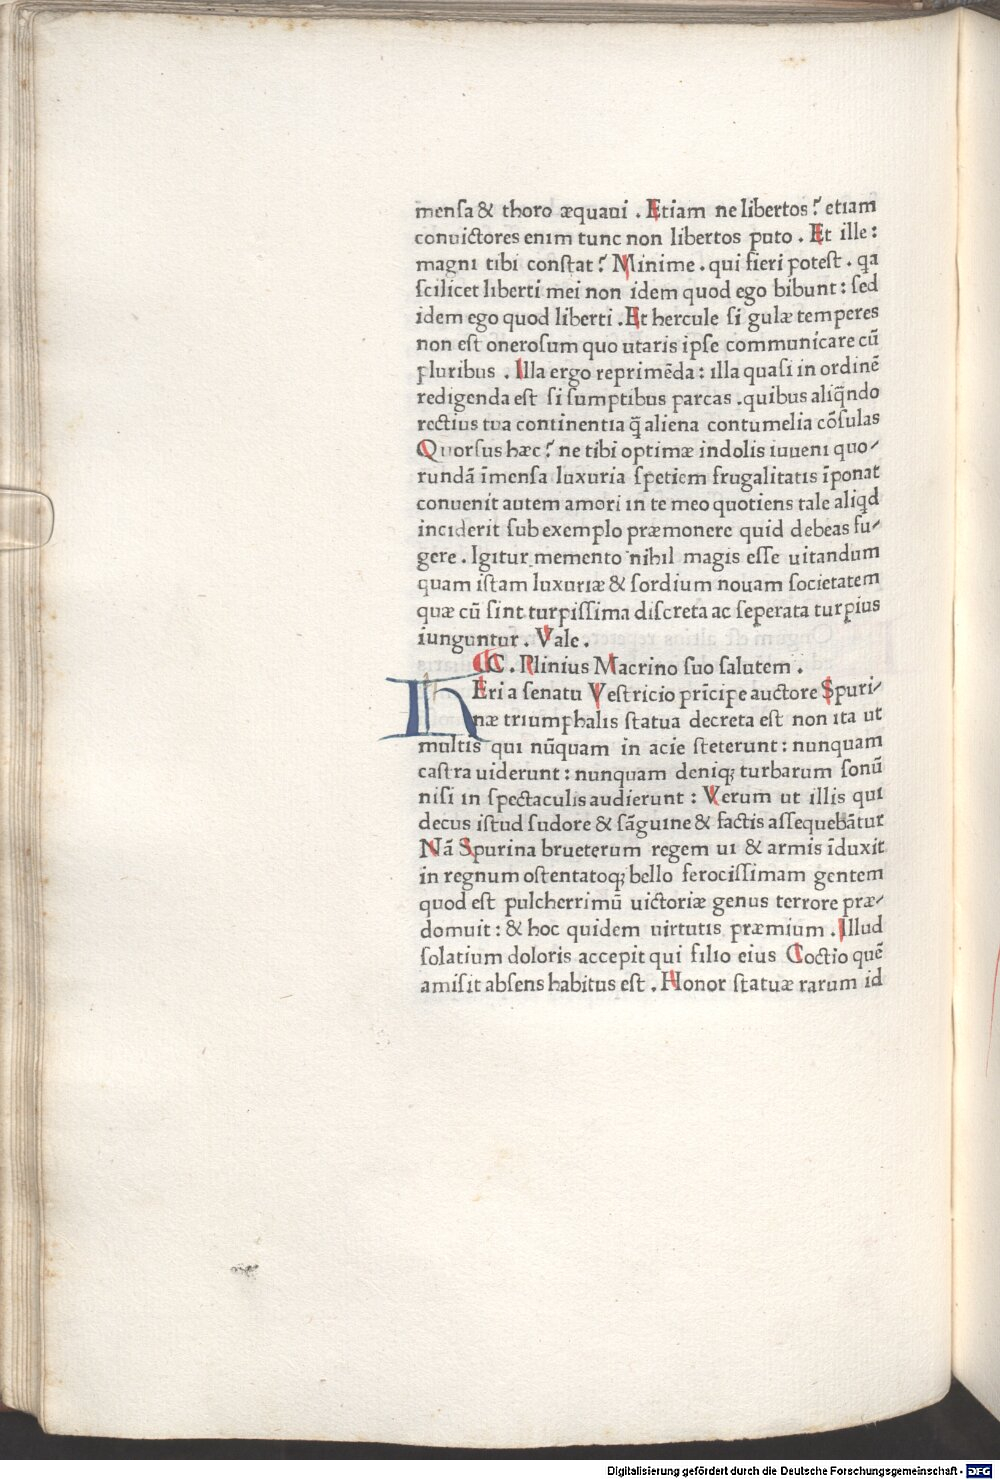 menſa & thoro æquaui . Etiam ne libertos? etiam
conuictores enim tunc non libertos puto . Et ille:
magni tibi conſtat? Minime . qui fieri poteſt . qa
ſcilicet liberti mei non idem quod ego bibunt: ſed
idem ego quod liberti . Et hercule ſi gulæ temperes
non eſt oneroſum quo utaris ipſe communicare cū
pluribus . Illa ergo reprimēda: illa quaſi in ordinē
redigenda eſt ſi ſumptibus parcas . quibus aliq̄ndo
rectius tua continentia q̄ aliena contumelia cōſulas
Quorſus hæc? ne tibi optimæ indolis iuueni quo-
rundā īmenſa luxuria ſpetiem frugalitatis īponat
conuenit autem amori in te meo quotiens tale aliqd
inciderit ſub exemplo præmonere quid debeas fu-
gere . Igitur memento nihil magis eſſe uitandum
quam iſtam luxuriæ & ſordium nouam ſocietatem
quæ cū ſint turpiſſima diſcreta ac ſeperata turpius
iunguntur . Vale .
C . Plinius Macrino ſuo ſalutem .
HEri a ſenatu Veſtricio prīcipe auctore Spuri-
næ triumphalis ſtatua decreta eſt non ita ut
multis qui nūquam in acie ſteterunt: nunquam
caſtra uiderunt: nunquam deniq; turbarum ſonū
niſi in ſpectaculis audierunt: Verum ut illis qui
decus iſtud ſudore & ſāguine & factis aſſequebātur
Nā Spurina brueterum regem ui & armis īduxit
in regnum oſtentatoq; bello ferociſſimam gentem
quod eſt pulcherrimū uictoriæ genus terrore præ-
domuit: & hoc quidem uirtutis præmium . Illud
ſolatium doloris accepit qui filio eius Coctio quē
amiſit abſens habitus eſt . Honor ſtatuæ rarum id
Digitalisierung gefördert durch die Deutsche Forschungsgemeinschaft - DFG